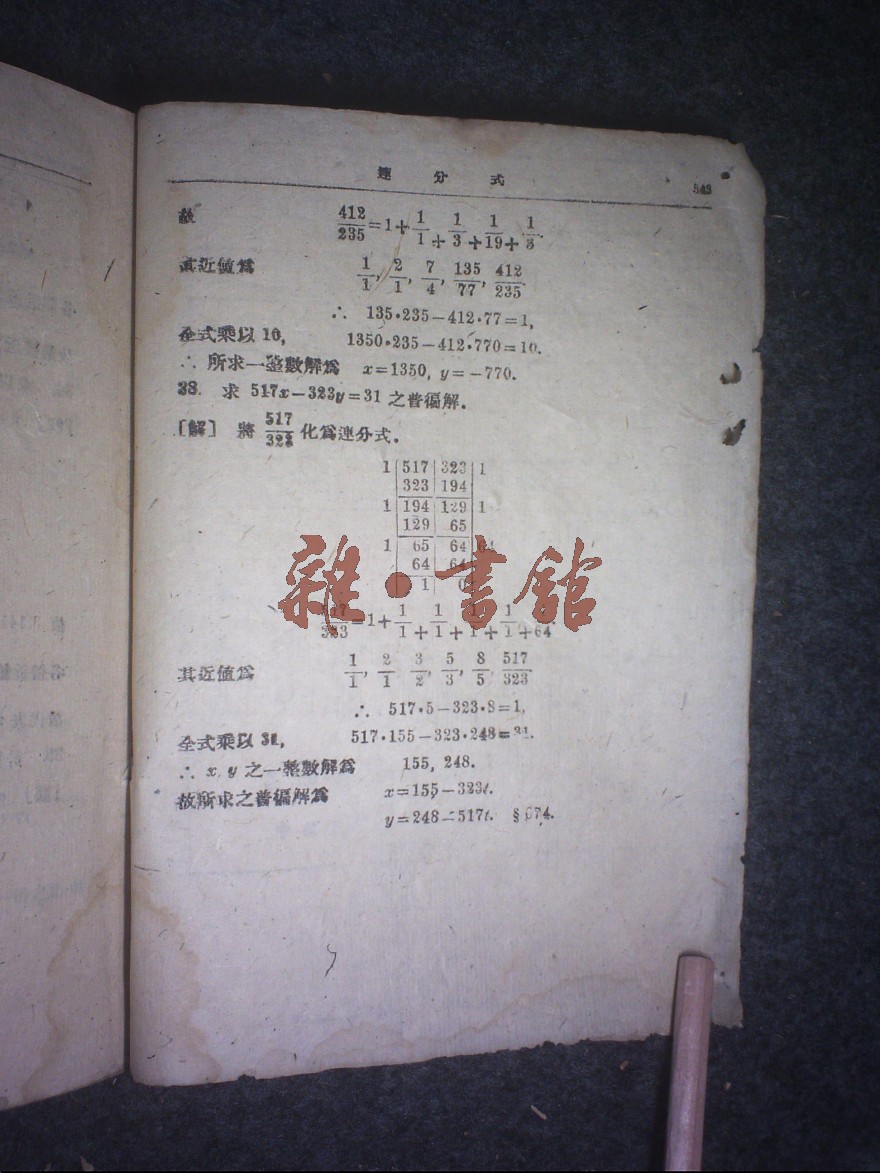 連 分 式 543
故 412/235=1+1/1+1/3+1/19+1/3.
其近値爲 1/1, 2/1, 7/4, 135/77, 412/235.
∴ 135•235−412•77=1,
全式乘以10, 1350•235−412•770=10.
∴ 所求一整數解爲 x=1350, y=−770.
38. 求 517x−323y=31 之普徧解.
〔解〕 將 517/323 化爲連分式.
1 517 323 1
323 194
1 194 129 1
129 65
1 65 64 64
64 64
1 0
雜·書館
517/323=1+1/1+1/1+1/1+1/1+64
其近値爲 1/1, 2/1 3/2, 5/3, 8/5, 517/323
∴ 517•5−323•8=1,
全式乘以31, 517•155−323•248=31.
∴ x, y 之一整數解爲 155, 248.
故所求之普徧解爲 x=155−323t.
y=248−517t. §674.